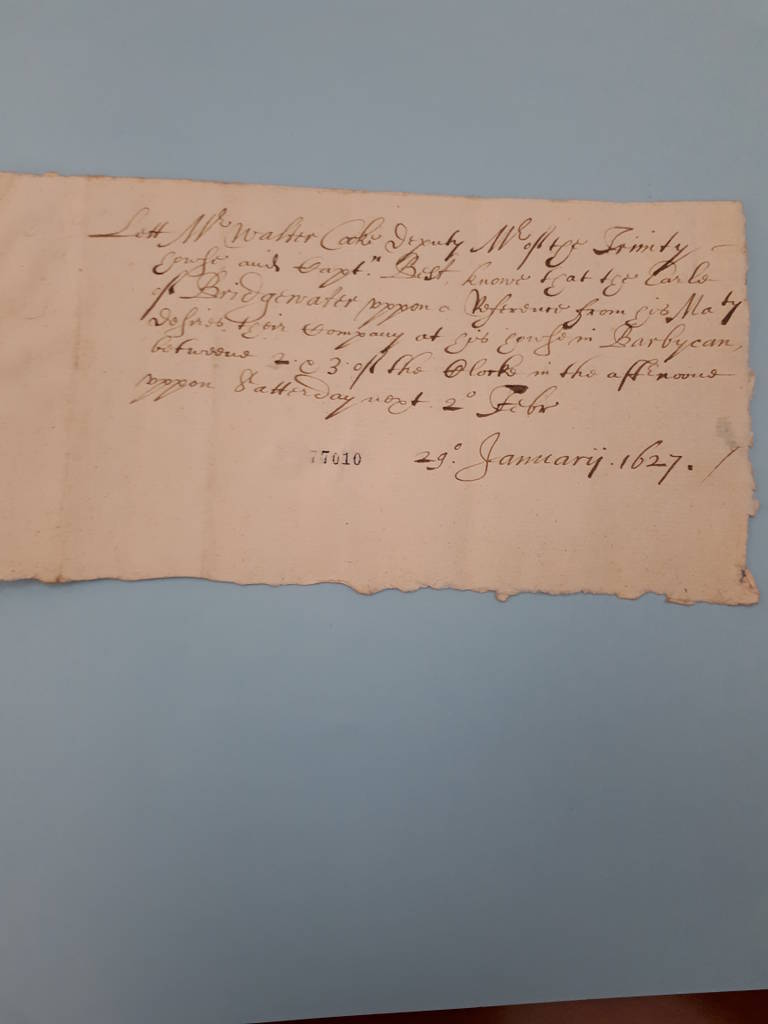 Lett Mr Walter Coke deputy Mr of the Trinity
howse and Capt:n Best knowe that the Earle
of Bridgewater uppon a Reference from his Maty
desires their Company at his howse in Barbycan,
betweene 2 & 3 of the Clocke in the afternoone
uppon Satterday next 2o Febr
77010 29o. Januarij. 1627. /